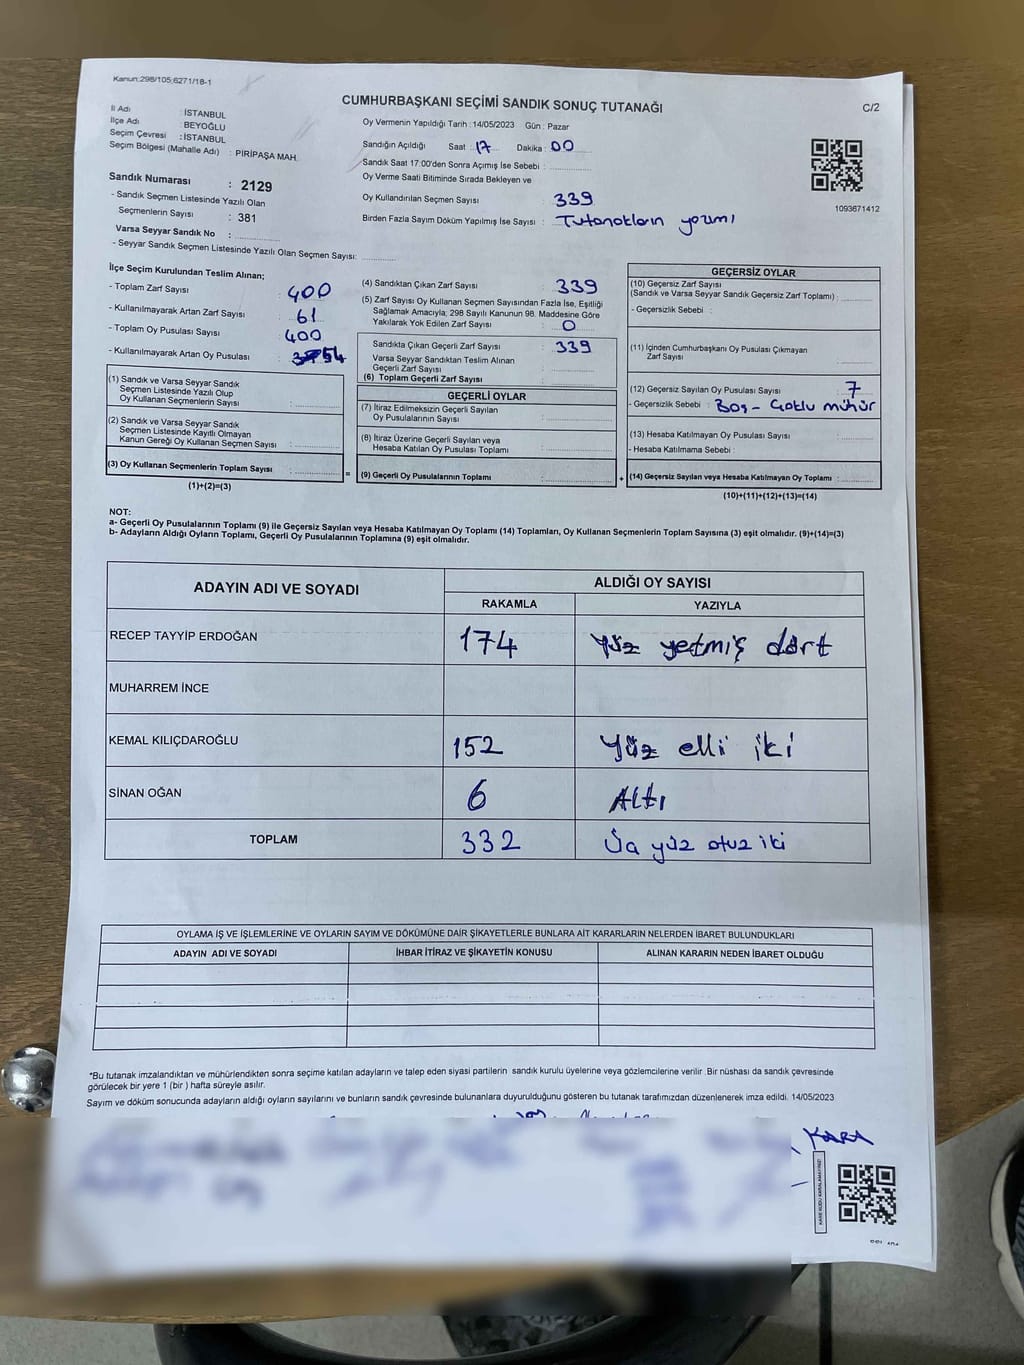 Kanun:298/105;6271/18-1
CUMHURBAŞKANI SEÇİMİ SANDIK SONUÇ TUTANAĞI
C/2
İl Adı : İSTANBUL
İlçe Adı : BEYOĞLU
Seçim Çevresi : İSTANBUL
Seçim Bölgesi (Mahalle Adı) : PİRİPAŞA MAH.
Sandık Numarası : 2129
- Sandık Seçmen Listesinde Yazılı Olan
Seçmenlerin Sayısı : 381
Varsa Seyyar Sandık No :
- Seyyar Sandık Seçmen Listesinde Yazılı Olan Seçmen Sayısı:
Oy Vermenin Yapıldığı Tarih : 14/05/2023 Gün : Pazar
Sandığın Açıldığı Saat 17 Dakika : 00
Sandık Saat 17:00'den Sonra Açımış İse Sebebi :
Oy Verme Saati Bitiminde Sırada Bekleyen ve
Oy Kullandırılan Seçmen Sayısı 339
Birden Fazla Sayım Döküm Yapılmış İse Sayısı : Tutanakların yazımı
1093671412
İlçe Seçim Kurulundan Teslim Alınan;
- Toplam Zarf Sayısı : 400
- Kullanılmayarak Artan Zarf Sayısı : 61
- Toplam Oy Pusulası Sayısı : 400
- Kullanılmayarak Artan Oy Pusulası :
(1) Sandık ve Varsa Seyyar Sandık
Seçmen Listesinde Yazılı Olup
Oy Kullanan Seçmenlerin Sayısı :
(2) Sandık ve Varsa Seyyar Sandık
Seçmen Listesinde Kayıtlı Olmayan
Kanun Gereği Oy Kullanan Seçmen Sayısı :
(3) Oy Kullanan Seçmenlerin Toplam Sayısı :
(1)+(2)=(3)
=
(4) Sandıktan Çıkan Zarf Sayısı : 339
(5) Zarf Sayısı Oy Kullanan Seçmen Sayısından Fazla İse, Eşitliği
Sağlamak Amacıyla; 298 Sayılı Kanunun 98. Maddesine Göre
Yakılarak Yok Edilen Zarf Sayısı : 0
Sandıkta Çıkan Geçerli Zarf Sayısı : 339
Varsa Seyyar Sandıktan Teslim Alınan
Geçerli Zarf Sayısı :
(6) Toplam Geçerli Zarf Sayısı :
GEÇERLİ OYLAR
(7) İtiraz Edilmeksizin Geçerli Sayılan
Oy Pusulalarının Sayısı :
(8) İtiraz Üzerine Geçerli Sayılan veya
Hesaba Katılan Oy Pusulası Toplamı :
(9) Geçerli Oy Pusulalarının Toplamı :
+
GEÇERSİZ OYLAR
(10) Geçersiz Zarf Sayısı
(Sandık ve Varsa Seyyar Sandık Geçersiz Zarf Toplamı) :
- Geçersizlik Sebebi :
(11) İçinden Cumhurbaşkanı Oy Pusulası Çıkmayan
Zarf Sayısı :
(12) Geçersiz Sayılan Oy Pusulası Sayısı : 7
- Geçersizlik Sebebi : Boş - Çoklu mühür
(13) Hesaba Katılmayan Oy Pusulası Sayısı :
- Hesaba Katılmama Sebebi :
(14) Geçersiz Sayılan veya Hesaba Katılmayan Oy Toplamı :
(10)+(11)+(12)+(13)=(14)
NOT:
a- Geçerli Oy Pusulalarının Toplamı (9) ile Geçersiz Sayılan veya Hesaba Katılmayan Oy Toplamı (14) Toplamları, Oy Kullanan Seçmenlerin Toplam Sayısına (3) eşit olmalıdır. (9)+(14)=(3)
b- Adayların Aldığı Oyların Toplamı, Geçerli Oy Pusulalarının Toplamına (9) eşit olmalıdır.
ADAYIN ADI VE SOYADI
ALDIĞI OY SAYISI
RAKAMLA YAZIYLA
RECEP TAYYİP ERDOĞAN 174 Yüz yetmiş dört
MUHARREM İNCE
KEMAL KILIÇDAROĞLU 152 Yüz elli iki
SİNAN OĞAN 6 Altı
TOPLAM 332 Üç yüz otuz iki
OYLAMA İŞ VE İŞLEMLERİNE VE OYLARIN SAYIM VE DÖKÜMÜNE DAİR ŞİKAYETLERLE BUNLARA AİT KARARLARIN NELERDEN İBARET BULUNDUKLARI
ADAYIN ADI VE SOYADI İHBAR İTİRAZ VE ŞİKAYETİN KONUSU ALINAN KARARIN NEDEN İBARET OLDUĞU
*Bu tutanak imzalandıktan ve mühürlendikten sonra seçime katılan adayların ve talep eden siyasi partilerin sandık kurulu üyelerine veya gözlemcilerine verilir. Bir nüshası da sandık çevresinde
görülecek bir yere 1 (bir) hafta süreyle asılır.
Sayım ve döküm sonucunda adayların aldığı oyların sayılarını ve bunların sandık çevresinde bulunanlara duyurulduğunu gösteren bu tutanak tarafımızdan düzenlenerek imza edildi. 14/05/2023
KARA
KARE KODU KARALAMAYINIZ!